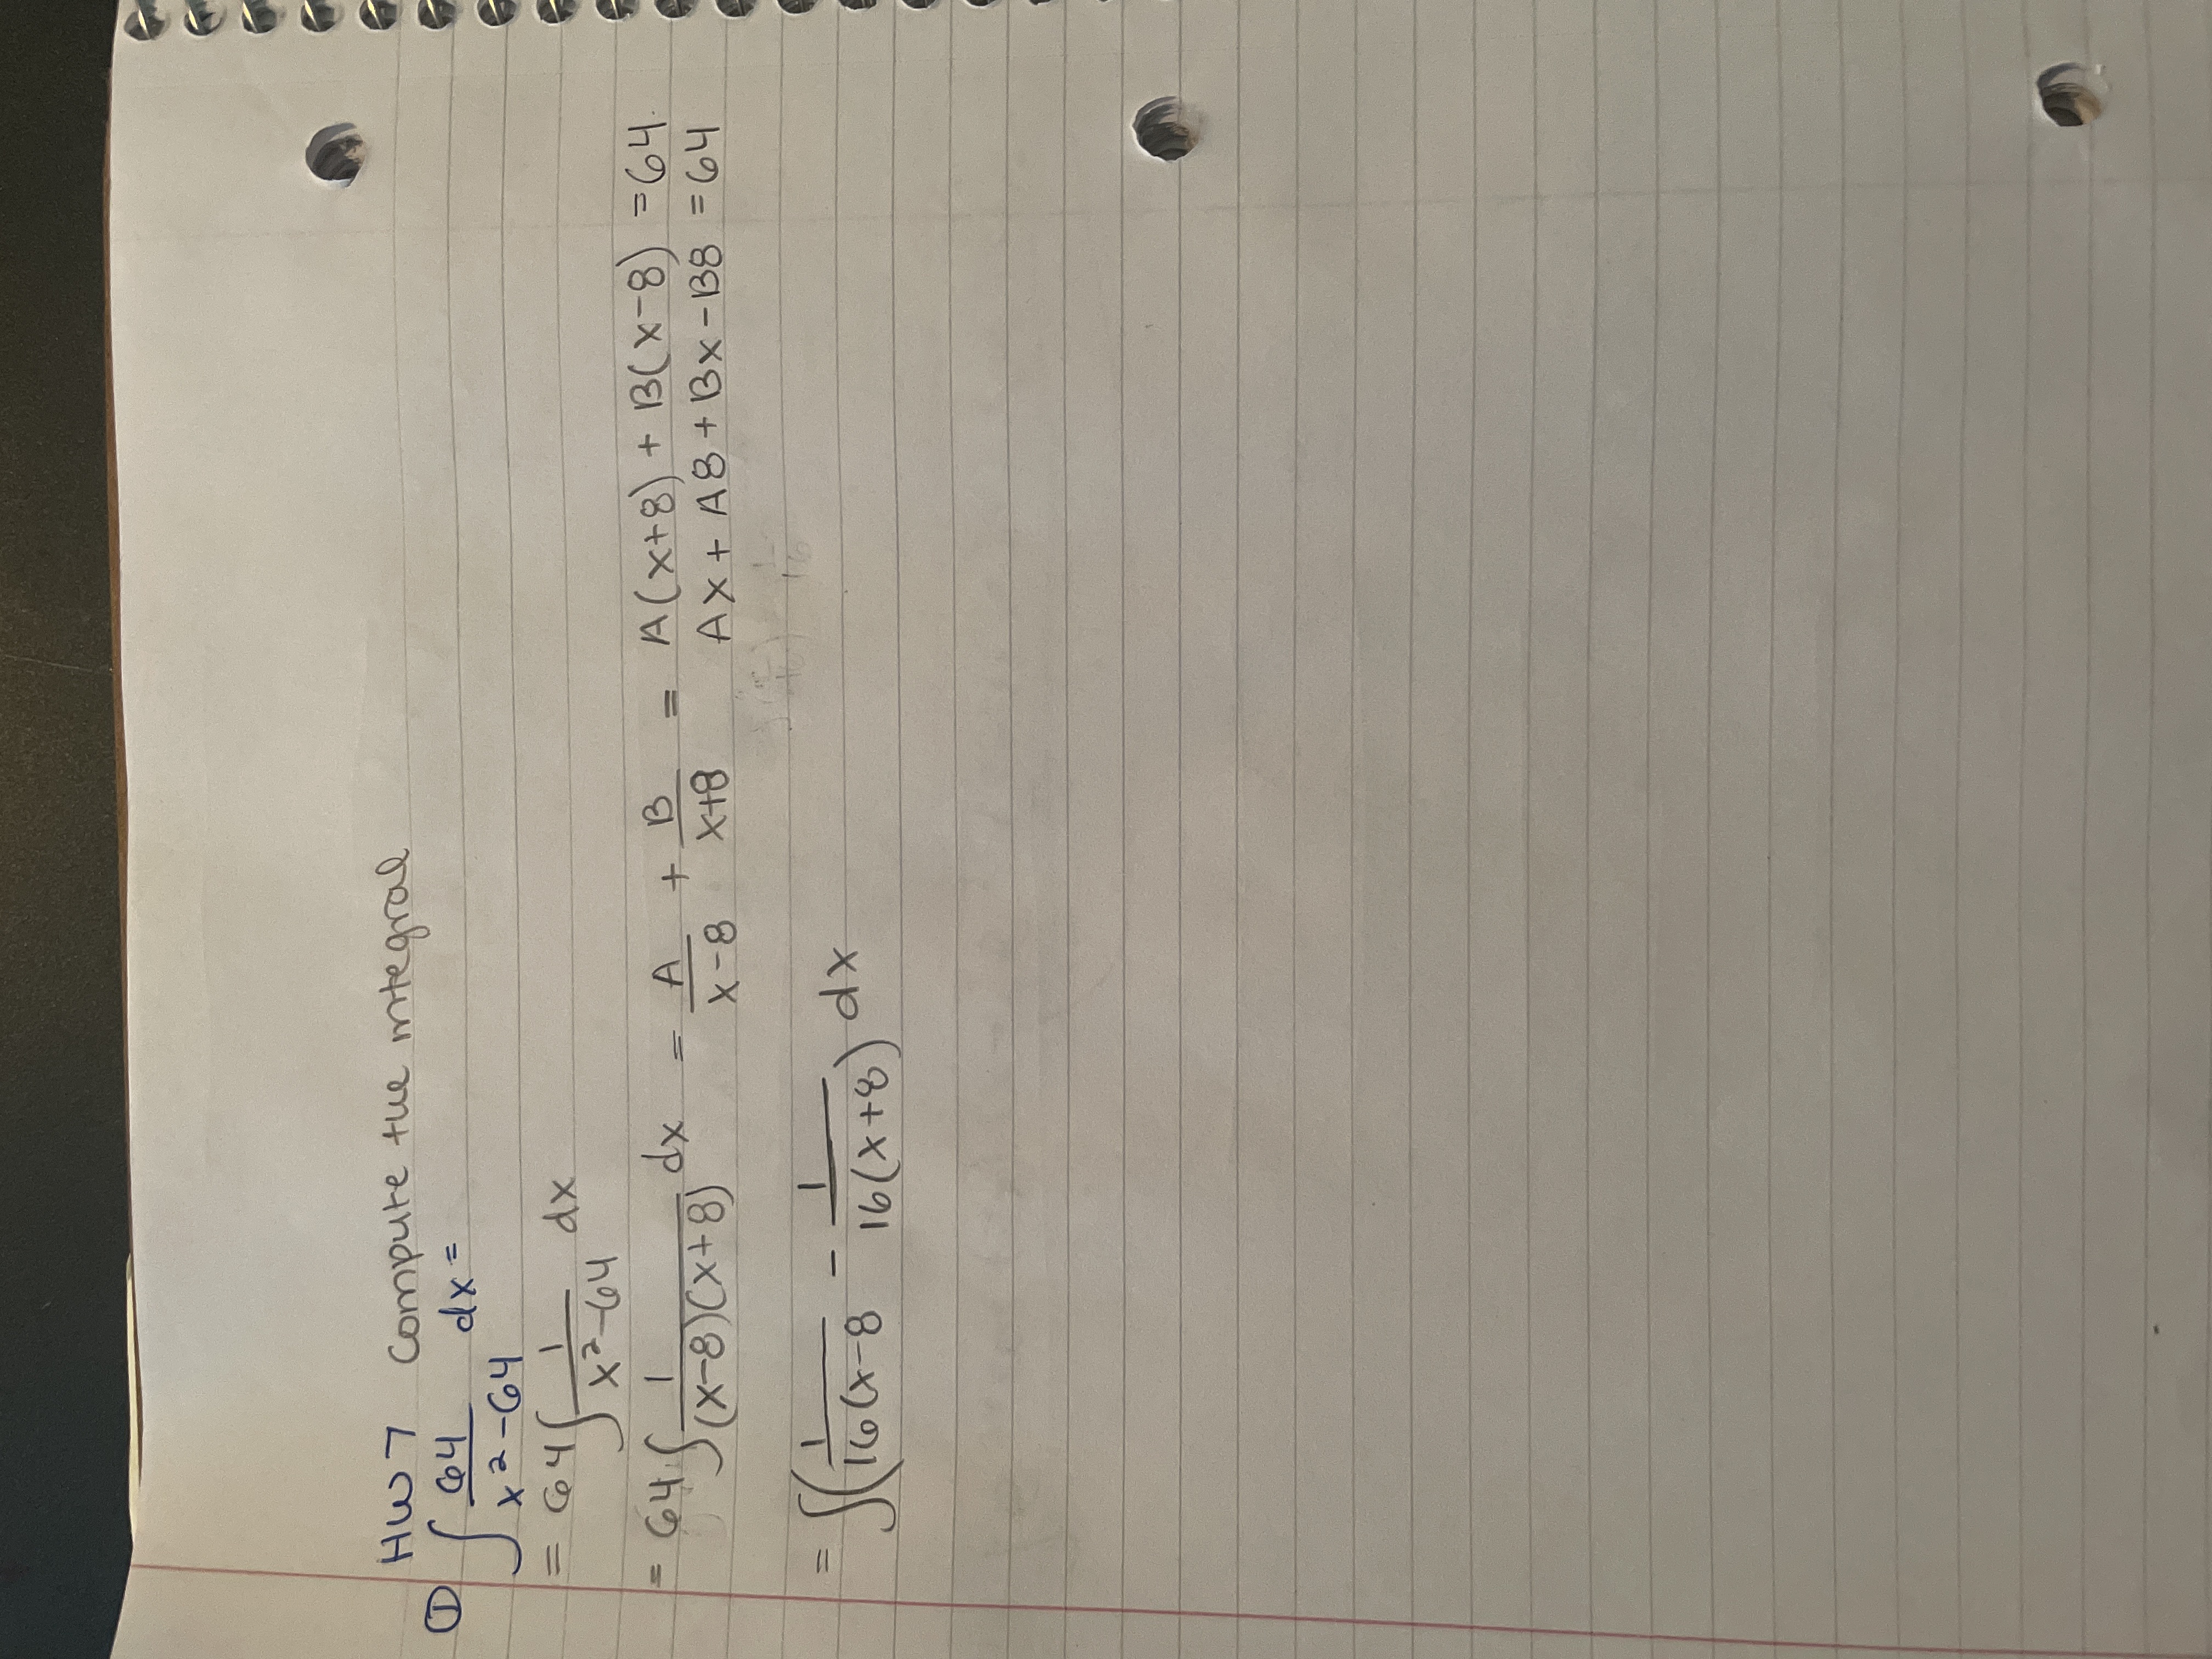 HW 7 Compute the integral
① ∫ 64/(x²-64) dx =
= 64 ∫ 1/(x²-64) dx
= 64 ∫ 1/((x-8)(x+8)) dx = A/(x-8) + B/(x+8) = A(x+8) + B(x-8) = 64
Ax + A8 + Bx - B8 = 64
= ∫( 1/(16(x-8) - 1/(16(x+8)) dx